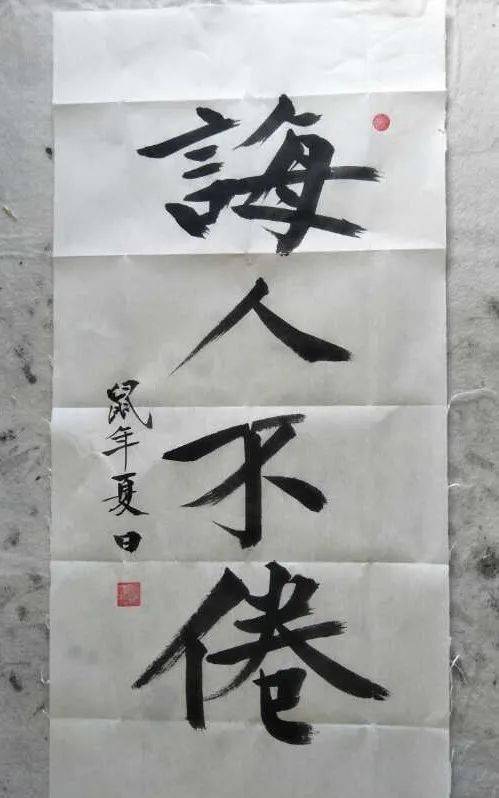 誨人不倦
鼠年夏日